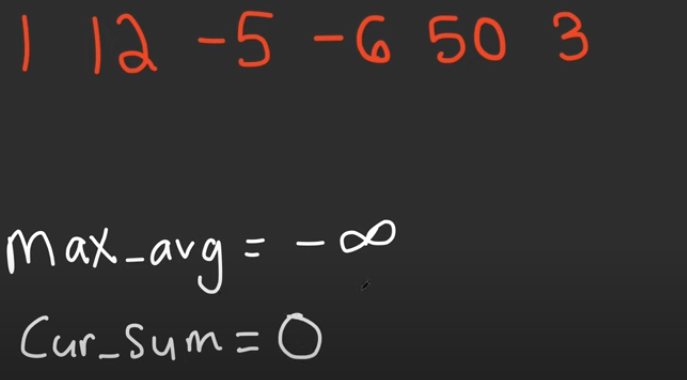 1 12 -5 -6 50 3
max_avg = -∞
Cur_sum = 0